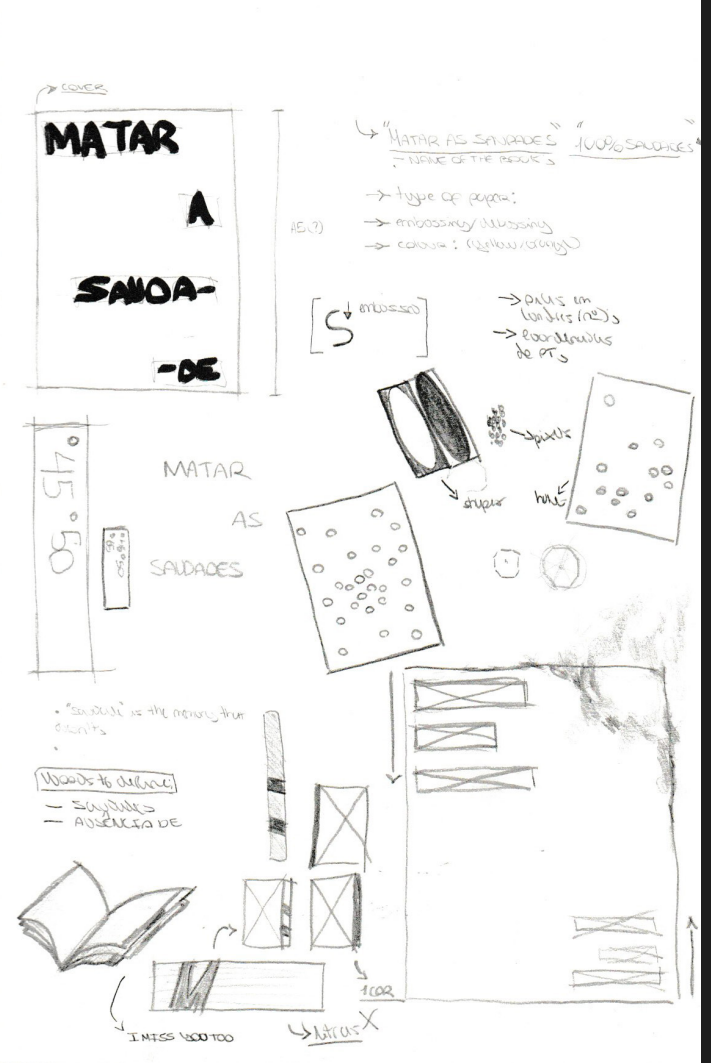 COVER
MATAR
A
SAUDA-
-DE
A5(?)
"MATAR AS SAUDADES" "100% SAUDADES"
- NAME OF THE BOOK
type of paper:
embossing/
colour: (yellow/orange)
S embosso
em
Londres (nº)
coordenadas
de PT
pixels
shapes
45° 50
MATAR
AS
SAUDADES
• "saudade" is the memory that
•
Words to define:
— Saudades
— AUSÊNCIA DE
M
I MISS YOU TOO
1 COR
letras X